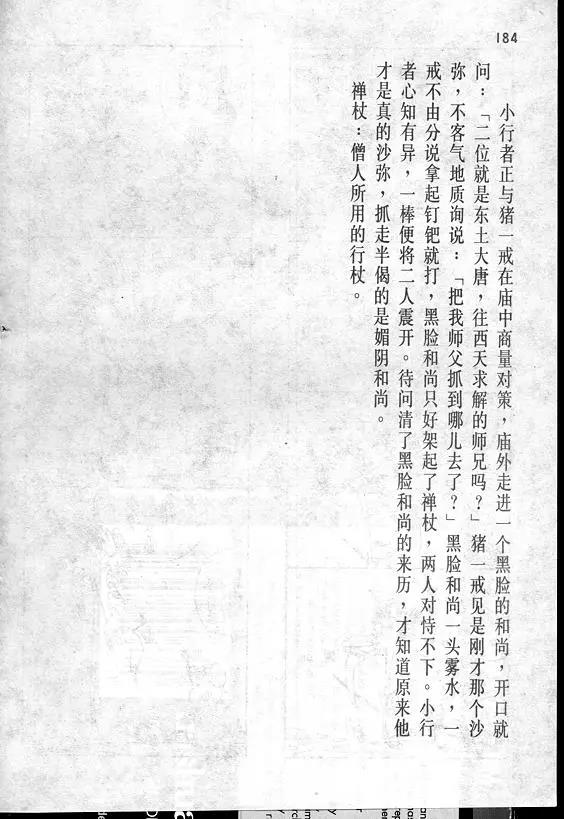 184
小行者正与猪一戒在庙中商量对策，庙外走进一个黑脸的和尚，开口就
问：「二位就是东土大唐，往西天求解的师兄吗？」猪一戒见是刚才那个沙
弥，不客气地质询说：「把我师父抓到哪儿去了？」黑脸和尚一头雾水，一
戒不由分说拿起钉钯就打，黑脸和尚只好架起了禅杖，两人对恃不下。小行
者心知有异，一棒便将二人震开。待问清了黑脸和尚的来历，才知道原来他
才是真的沙弥，抓走半偈的是媚阴和尚。
禅杖：僧人所用的行杖。